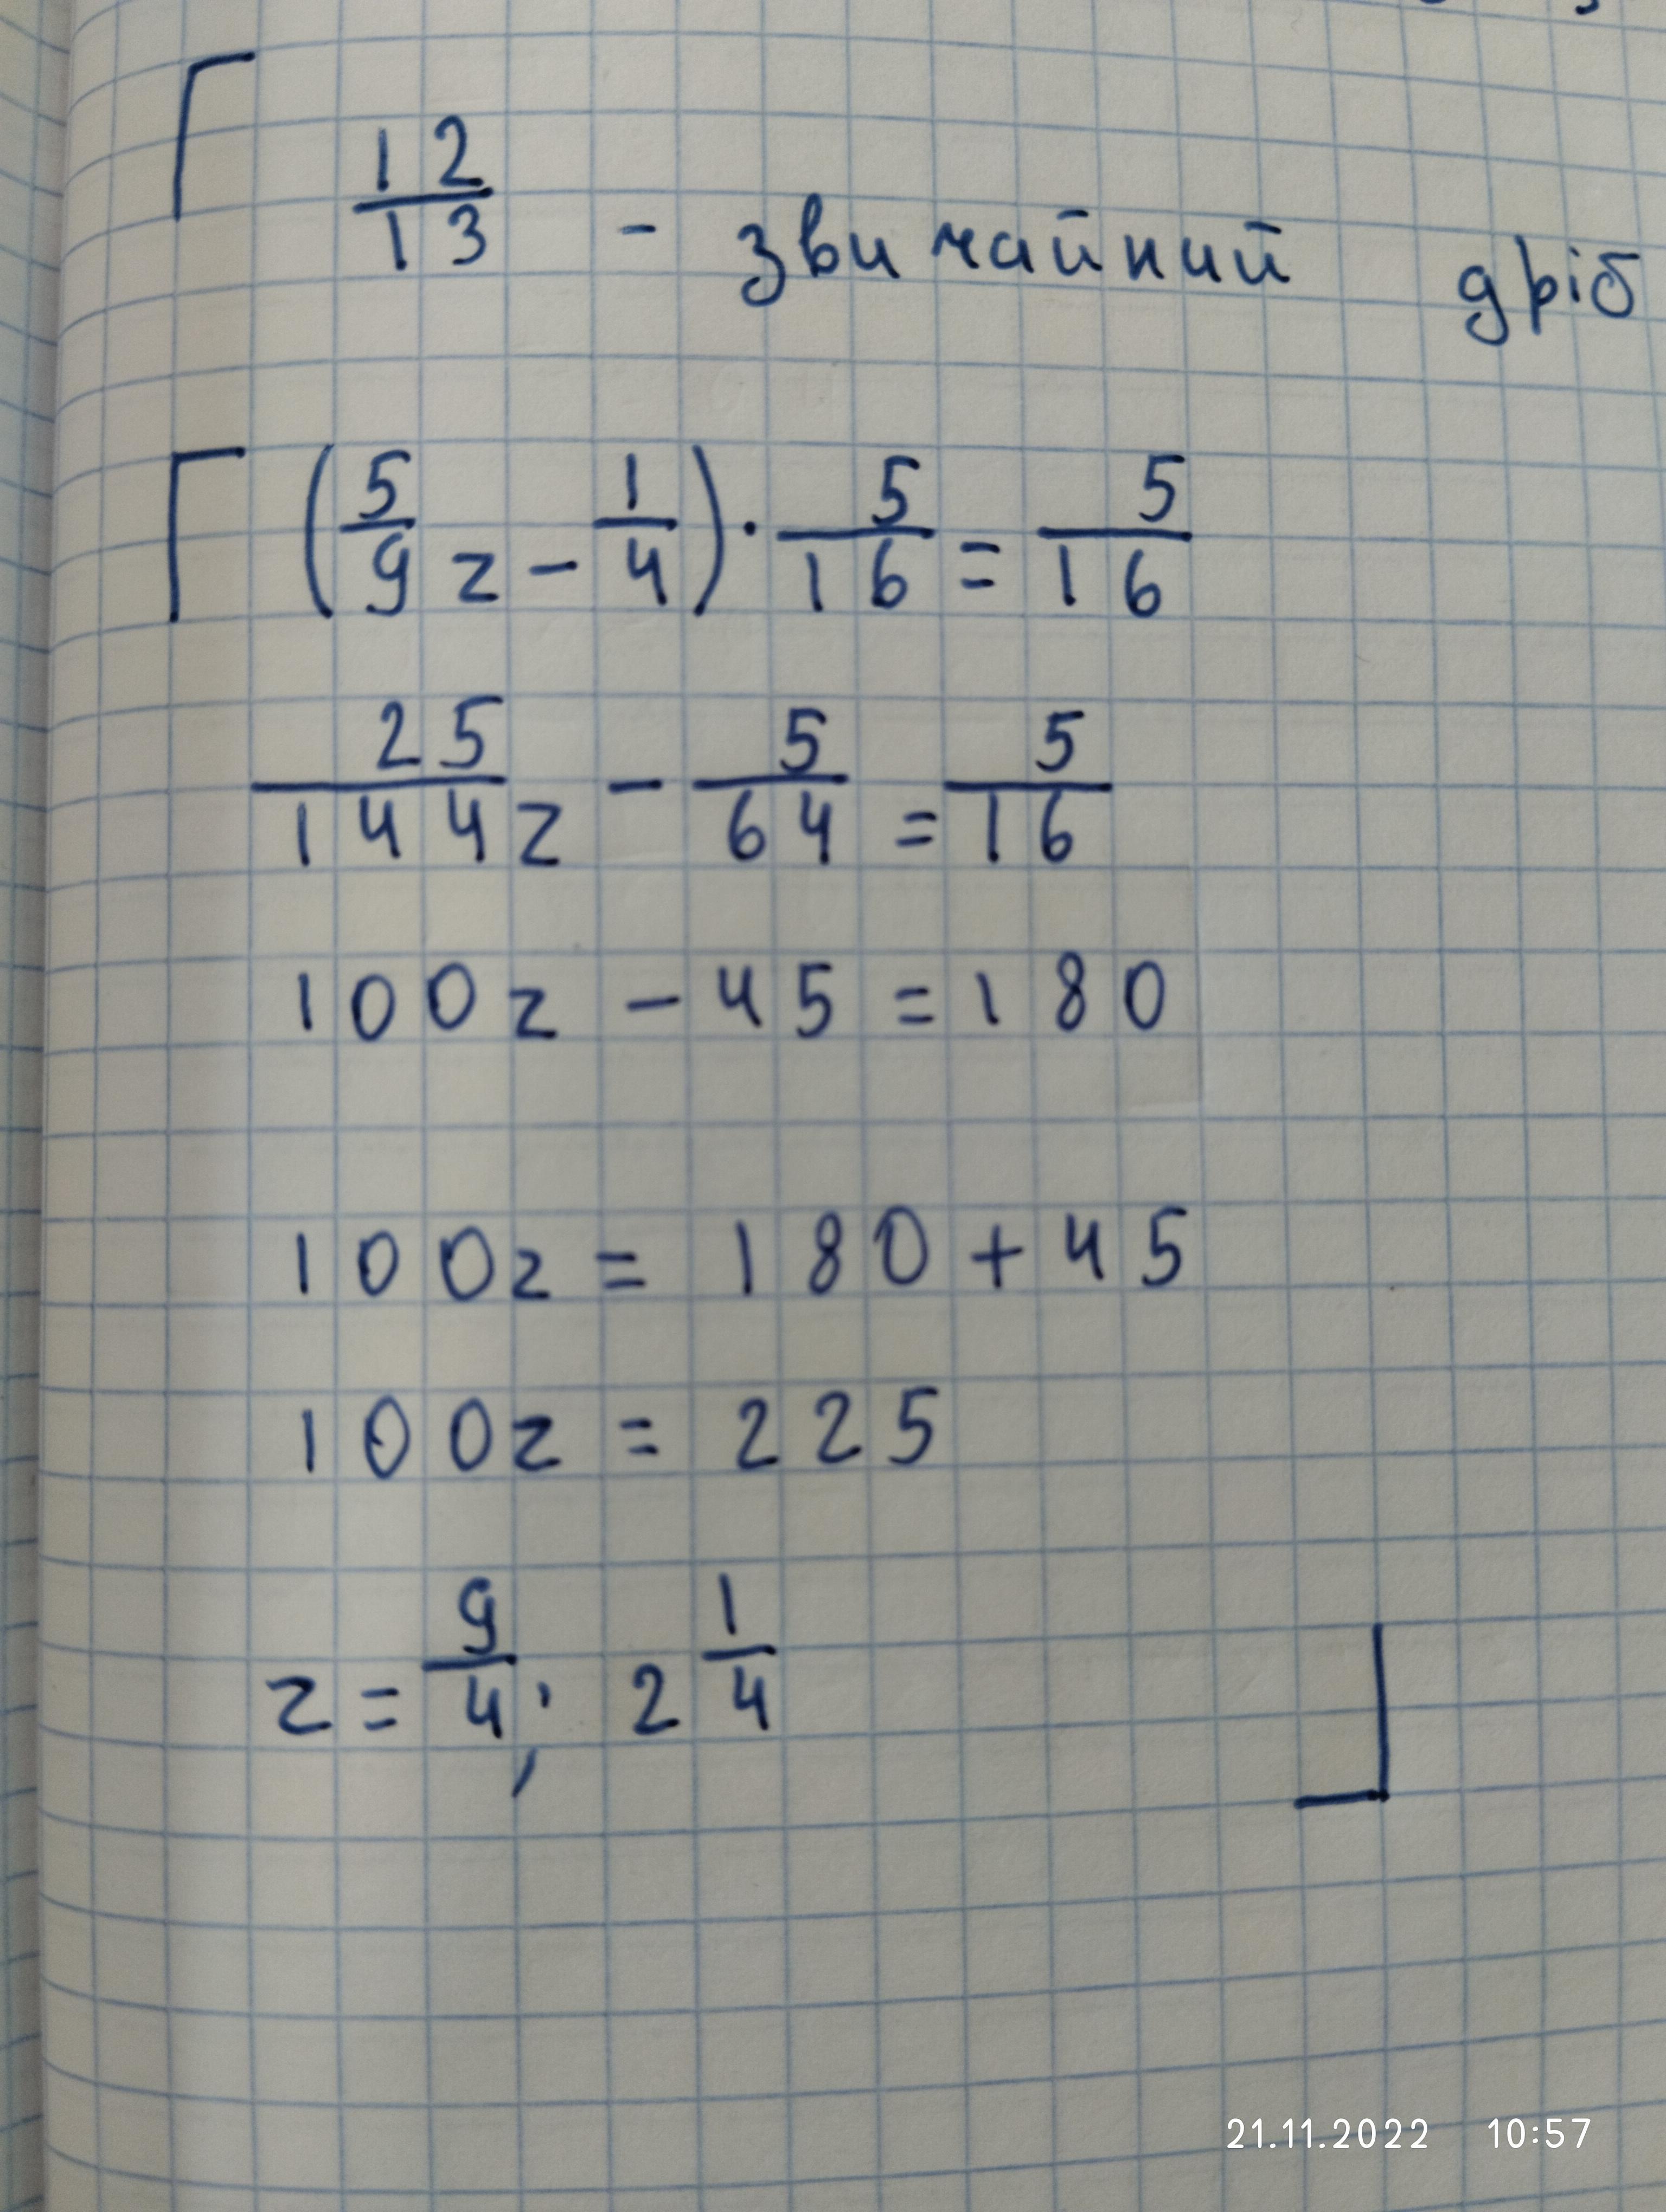 12/13 - звичайний дріб
(5/9 z - 1/4) · 5/16 = 5/16
25/144 z - 5/64 = 5/16
100z - 45 = 180
100z = 180 + 45
100z = 225
z = 9/4; 2 1/4
21.11.2022 10:57